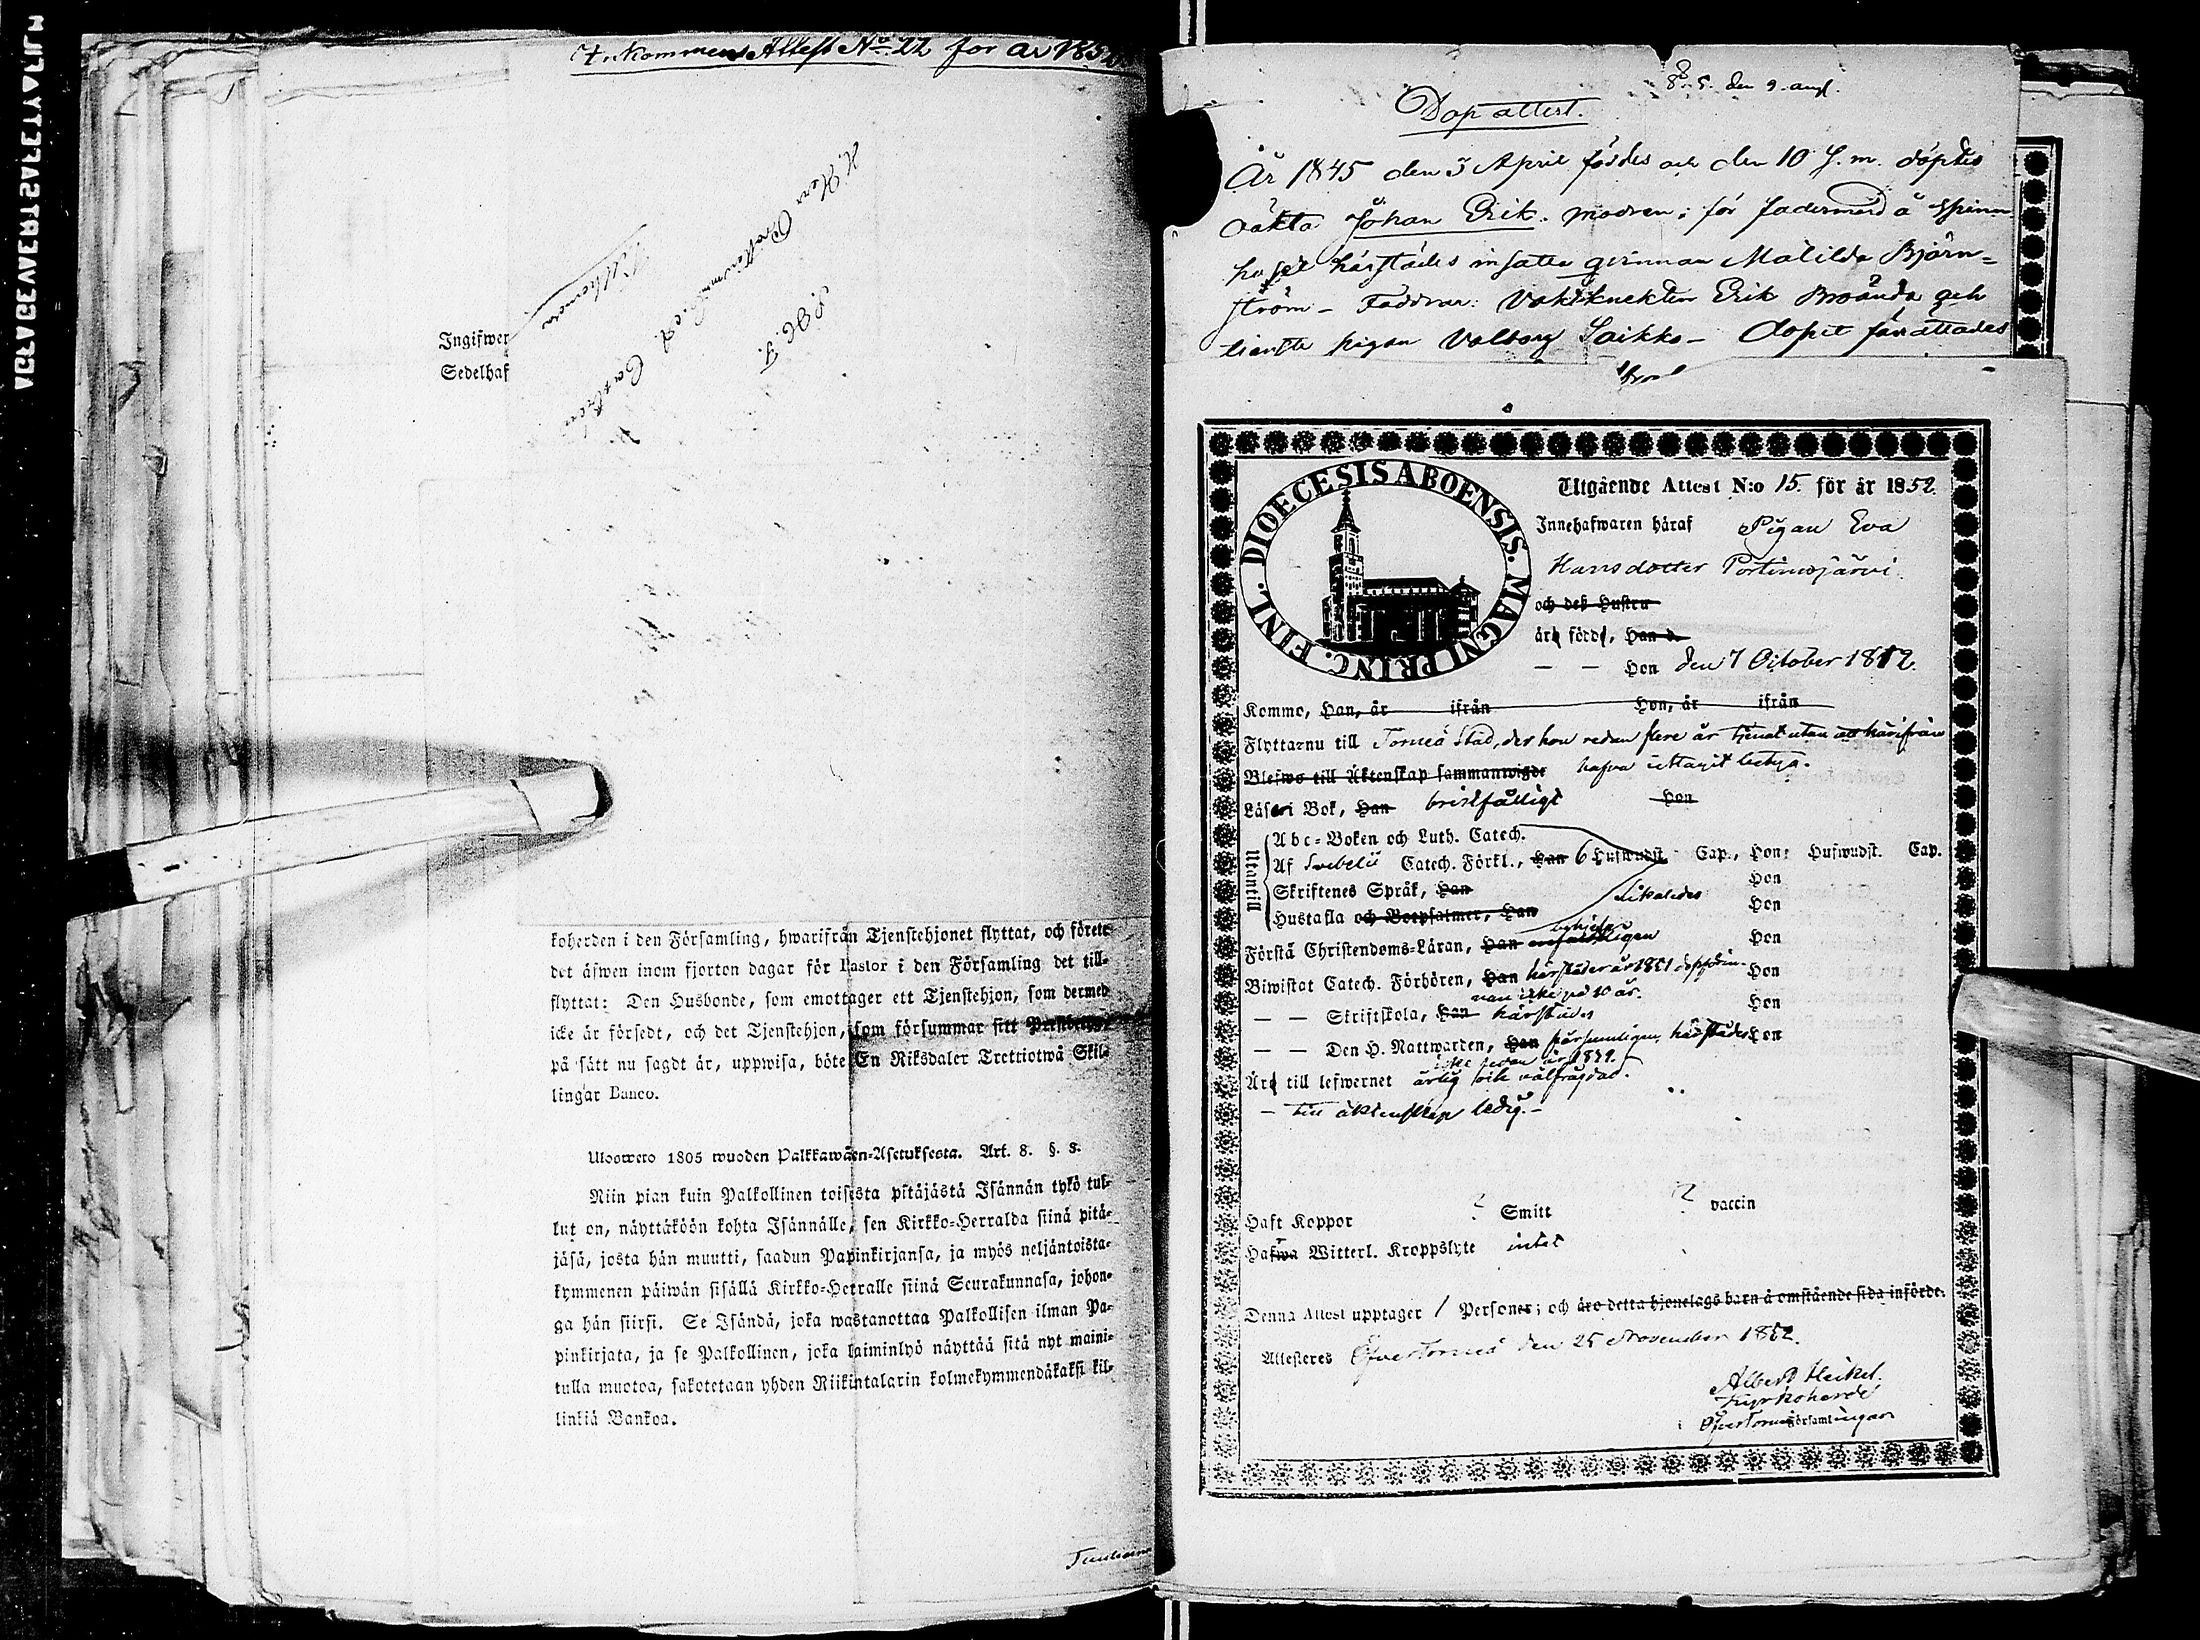 Inkommen Attest No. 22 för år 185
Ingifwer
Sedelhaf
koherden i den Församling, hwarifrån Tjenstehjonet flyttat, och förete
det äfwen inom fjorton dagar för Pastor i den Församling det till-
flyttat: Den Husbonde, som emottager ett Tjenstehjon, som dermed
icke är försedt, och det Tjenstehjon, som försummar sitt
på sätt nu sagdt är, uppwisa, böte En Riksdaler Trettiotwå Skil-
lingar Banco.
Uloswero 1805 wuoden Palkkawäen-Asetuksesta. Art. 8. §. 3.
Niin pian kuin Palkollinen toisesta pitäjästä Isännän tykö tul-
lut on, näyttäköön kohta Isännälle, sen Kirkko-Herralda siinä pitä-
jäsä, josta hän muutti, saadun Papinkirjansa, ja myös neljäntoista-
kymmenen päiwän sisällä Kirkko-Herralle siinä Seurakunnasa, johon-
ga hän siirsi. Se Isändä, joka wastanottaa Palkollisen ilman Pa-
pinkirjata, ja se Palkollinen, joka laiminlyö näyttää sitä nyt maini-
tulla muotoa, sakotetaan yhden Riikintalarin kolmekymmendäkaksi kil-
linkiä Bankoa.
den 9. aug.
Dop attest.
År 1845 den 3 April föddes och den 10 s. m. döptes
oäkta Johan Erik. modren: för fadermord å spinn
huset härstädes insatta qvinnan Matilda Björn=
ström – Faddrar: Vaktknekten Erik och
pigan Valborg Saikko – Dopet förrättades
DIOECESIS ABOENSIS. MAGNI PRINC. FINL.
Utgående Attest N:o 15. för år 1852.
Innehafwaren häraf Pigan Eva
Hansdotter Portimojärvi.
och deß Hustru
äro födde, Han d.
— — Hon den 7 October 1812.
Kommo, Han, år ifrån Hon, år ifrån
Flytta nu till Torneå Stad, der hon redan flere år tjenat utan att härifrån
Blefwo till Äktenskap sammanwigde hafva uttagit betyg.
Läser i Bok, Han bristfälligt Hon
Utantill
Abc-Boken och Luth. Catech.
Af Svebelii Catech. Förkl., Han 6 Hufwudst. Cap., Hon: Hufwudst. Cap.
Skriftenes Språk, Han Hon
Hustafla och Botpsalmer, Han likaledes Hon
Förstå Christendoms-Läran, Han Hon
Biwistat Catech. Förhören, Han härstädes år 1851 Hon
icke på 10 år.
— — Skriftskola, Han härstädes Hon
— — Den H. Nattwarden, Han härstädes Hon
icke sedan år
Äro till lefwernet ärlig och välfräjdad.
– till äktenskap ledig. –
Haft Koppor ? Smitt ? vaccin
Hafwa Witterl. Kroppslyte intet
Denna Attest upptager 1 Person; och äro detta hjonelags barn å omstående sida införde.
Attesteres Öfver Torneå den 25 November 1852.
Albert Heikel.
Kyrkoherde
Öfver Torneå församlingar